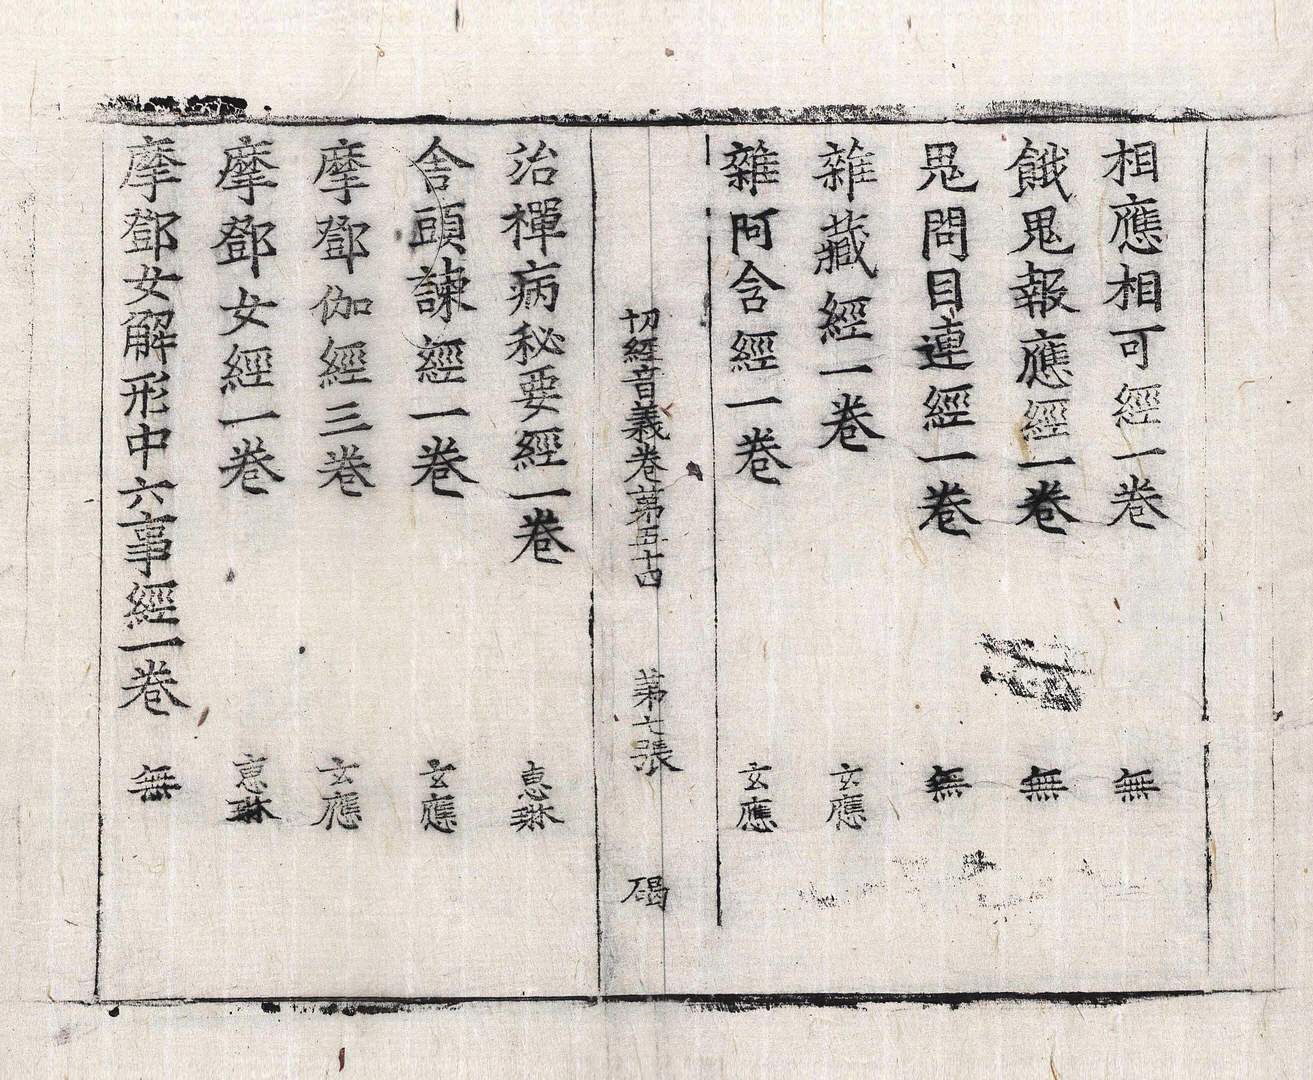 相應相可經一卷 無
餓鬼報應經一卷 無
鬼問目連經一卷 無
雜藏經一卷 玄應
雜阿含經一卷 玄應
切經音義卷第五十四 第七張 碣
治禪病秘要經一卷 惠琳
舍頭諫經一卷 玄應
摩鄧伽經三卷 玄應
摩鄧女經一卷 惠琳
摩鄧女解形中六事經一卷 無